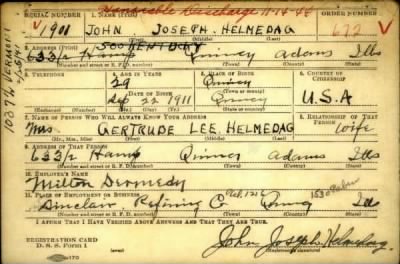 Honorable Discharge 11-14-45
SERIAL NUMBER 1. NAME (Print) ORDER NUMBER
V 1901 JOHN JOSEPH. HELMEDAG 672 V
(First) (Middle) (Last)
500 KENTUCKY
2. ADDRESS (Print)
633½ Hamp Quincy Adams Ills
(Number and street or R. F. D. number) (Town) (County) (State)
1037½ VERMONT
3. TELEPHONE 4. AGE IN YEARS 5. PLACE OF BIRTH 6. COUNTRY OF CITIZENSHIP
29 Quincy
DATE OF BIRTH
22 1911 Quincy U.S.A
(Mo.) (Day) (Yr.) (State or country)
7. NAME OF PERSON WHO WILL ALWAYS KNOW YOUR ADDRESS 8. RELATIONSHIP OF THAT PERSON
Mrs. GERTRUDE LEE HELMEDAG wife
(Mr., Mrs., Miss) (First) (Middle) (Last)
9. ADDRESS OF THAT PERSON
633½ Hamp Quincy Adams Ills
(Number and street or R. F. D. number) (Town) (County) (State)
10. EMPLOYER'S NAME
Milton Dermedy
11. PLACE OF EMPLOYMENT OR BUSINESS
Sinclair Refining Co Quincy Ills
(Number and street or R. F. D. number) (Town) (County) (State)
I AFFIRM THAT I HAVE VERIFIED ABOVE ANSWERS AND THAT THEY ARE TRUE.
REGISTRATION CARD
D. S. S. Form 1
John Joseph Helmedag
(Registrant's signature)